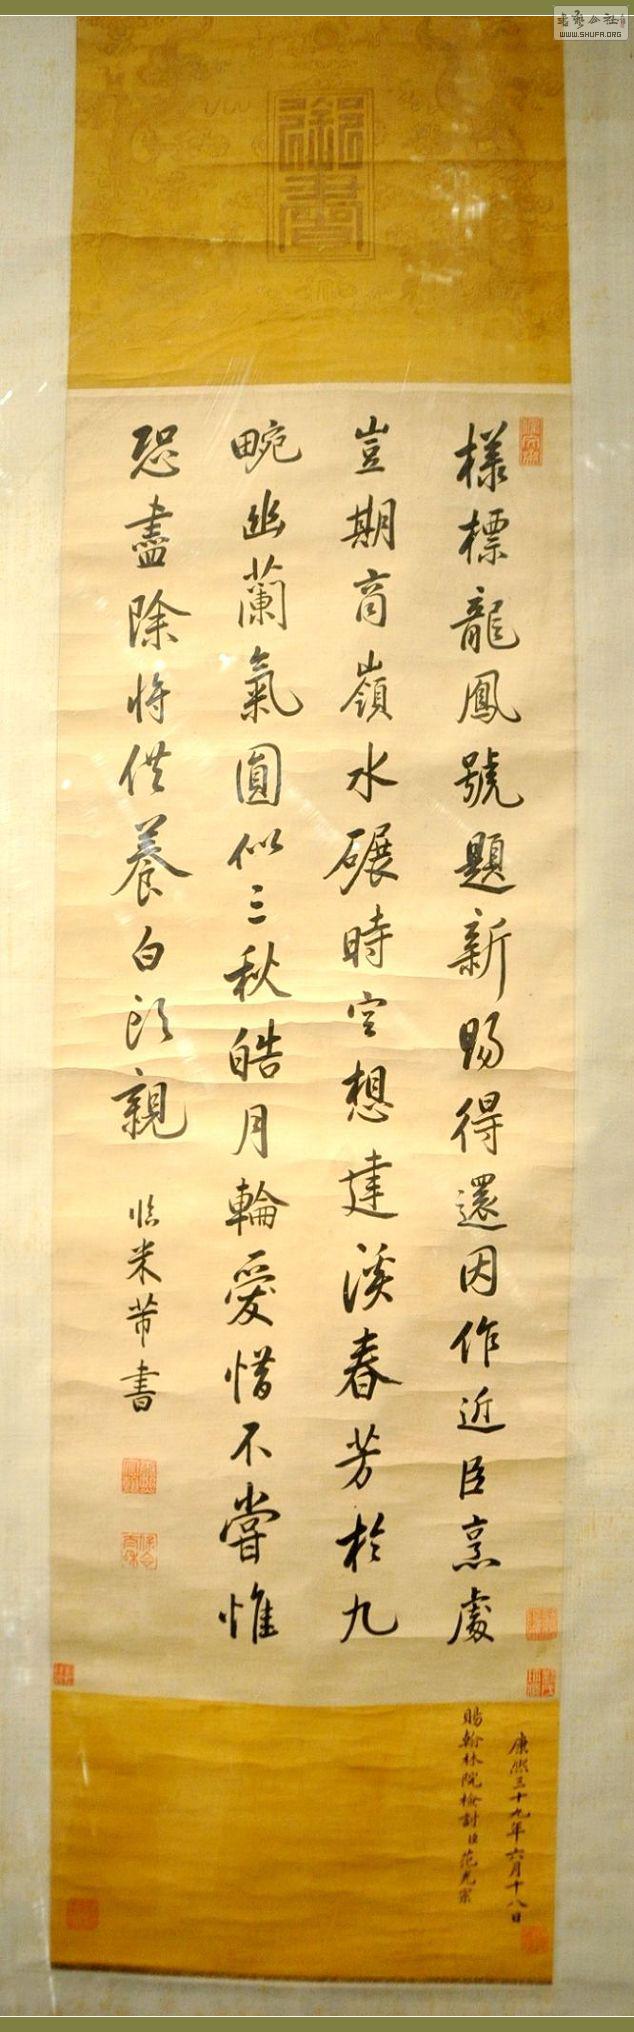 御書
樣標龍鳳號題新賜得還因作近臣烹處
豈期商嶺水碾時空想建溪春芳於九
畹幽蘭氣圓似三秋皓月輪愛惜不嘗惟
恐盡除將供養白頭親
臨米芾書
康熙三十九年六月十八日
賜翰林院檢討臣范光宗
書藝公社
WWW.SHUFA.ORG